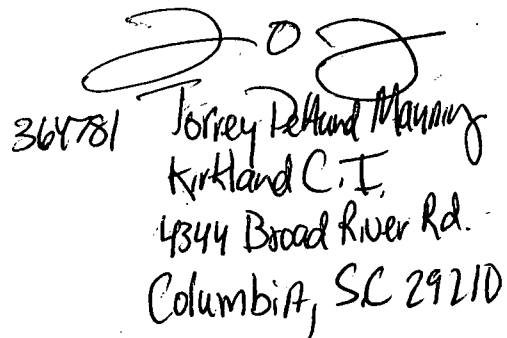 364781 Torrey Manning
Kirkland C.I.
4344 Broad River Rd.
Columbia, SC 29210